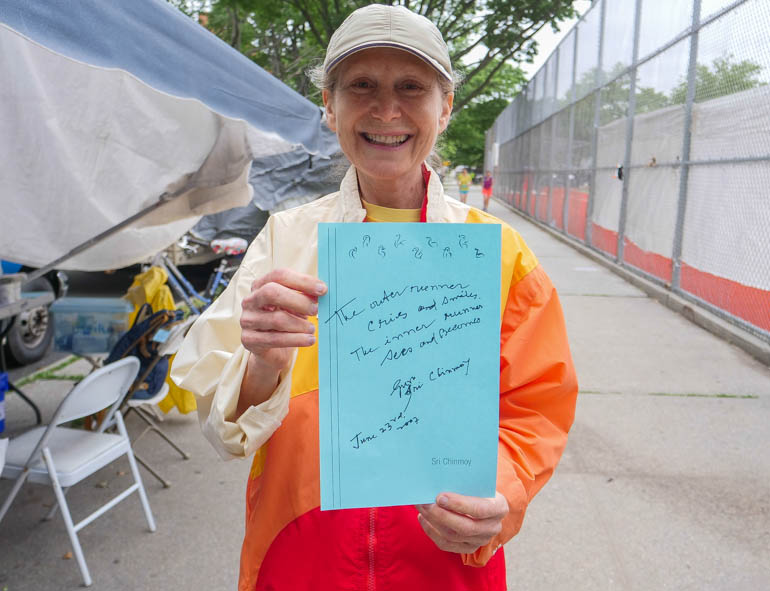 The outer runner
Cries and Smiles.
The inner runner
Sees and Becomes
Sri Chinmoy
June 23rd,
2007
Sri Chinmoy